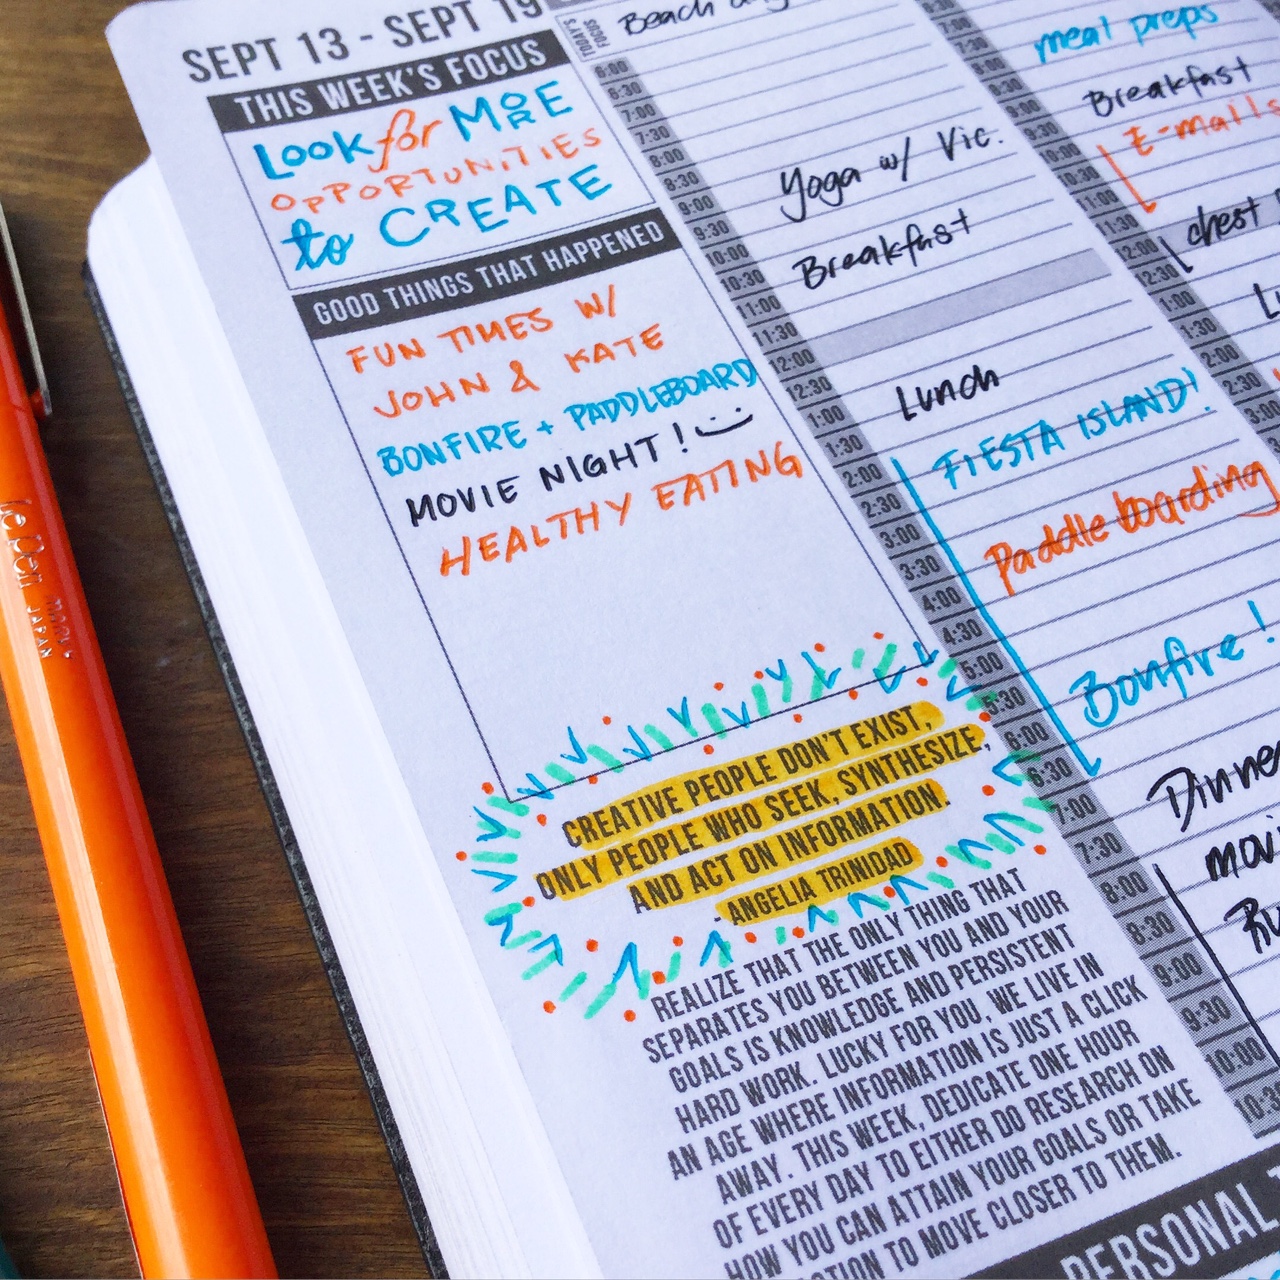 SEPT 13 - SEPT 19
THIS WEEK'S FOCUS
Look for MORE
OPPORTUNITIES
to CREATE
GOOD THINGS THAT HAPPENED
FUN TIMES W/
JOHN & KATE
BONFIRE + PADDLEBOARD
MOVIE NIGHT!
HEALTHY EATING
CREATIVE PEOPLE DON'T EXIST,
ONLY PEOPLE WHO SEEK, SYNTHESIZE,
AND ACT ON INFORMATION.
- ANGELIA TRINIDAD
REALIZE THAT THE ONLY THING THAT
SEPARATES YOU BETWEEN YOU AND YOUR
GOALS IS KNOWLEDGE AND PERSISTENT
HARD WORK. LUCKY FOR YOU, WE LIVE IN
AN AGE WHERE INFORMATION IS JUST A CLICK
AWAY. THIS WEEK, DEDICATE ONE HOUR
OF EVERY DAY TO EITHER DO RESEARCH ON
HOW YOU CAN ATTAIN YOUR GOALS OR TAKE
TO MOVE CLOSER TO THEM.
PERSONAL
TODAY'S
FOCUS
Beach
6:00
6:30
7:00
7:30
8:00
8:30
9:00
9:30
10:00
10:30
11:00
11:30
12:00
12:30
1:00
1:30
2:00
2:30
3:00
3:30
4:00
4:30
5:00
5:30
6:00
6:30
7:00
7:30
8:00
8:30
9:00
9:30
10:00
Yoga w/ Vic.
Breakfast
Lunch
FIESTA ISLAND!
Paddle boarding
Bonfire!
7:00
7:30
9:30
10:00
10:30
11:00
11:30
12:00
12:30
1:00
1:30
2:00
2:30
3:00
meal preps
Breakfast
E-mails
chest
Le Pen
JAPAN